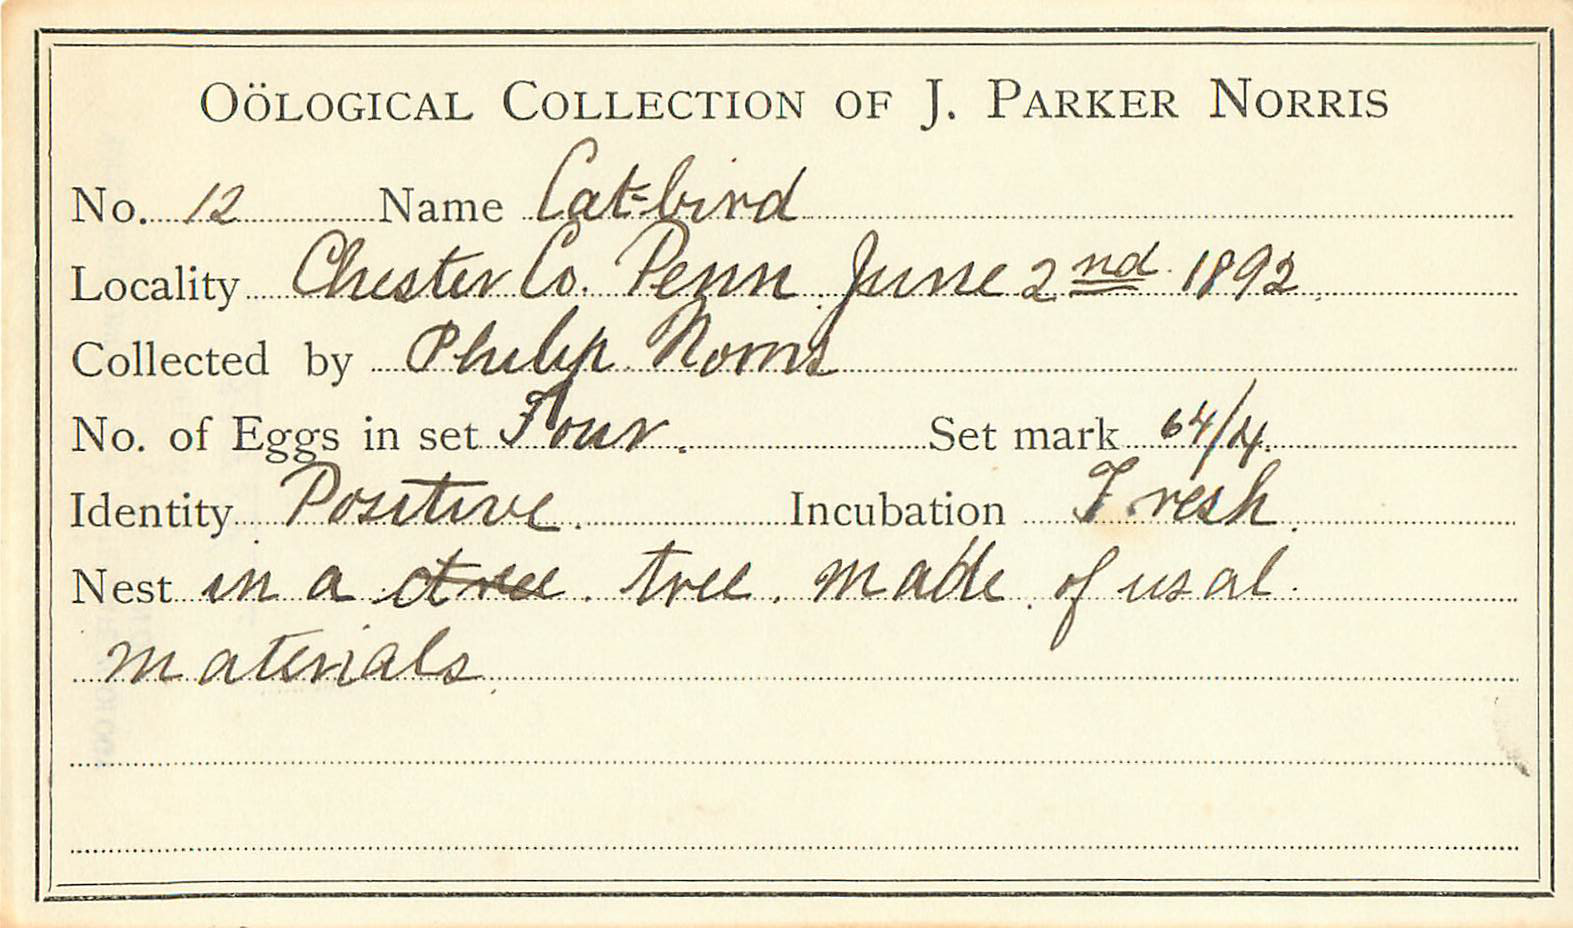 OÖLOGICAL COLLECTION OF J. PARKER NORRIS
No. 12 Name Cat-bird
Locality Chester Co. Penn. June 2nd. 1892.
Collected by Philip Norris
No. of Eggs in set Four. Set mark 64/4.
Identity Positive. Incubation Fresh.
Nest in a tree. made of usal
materials.